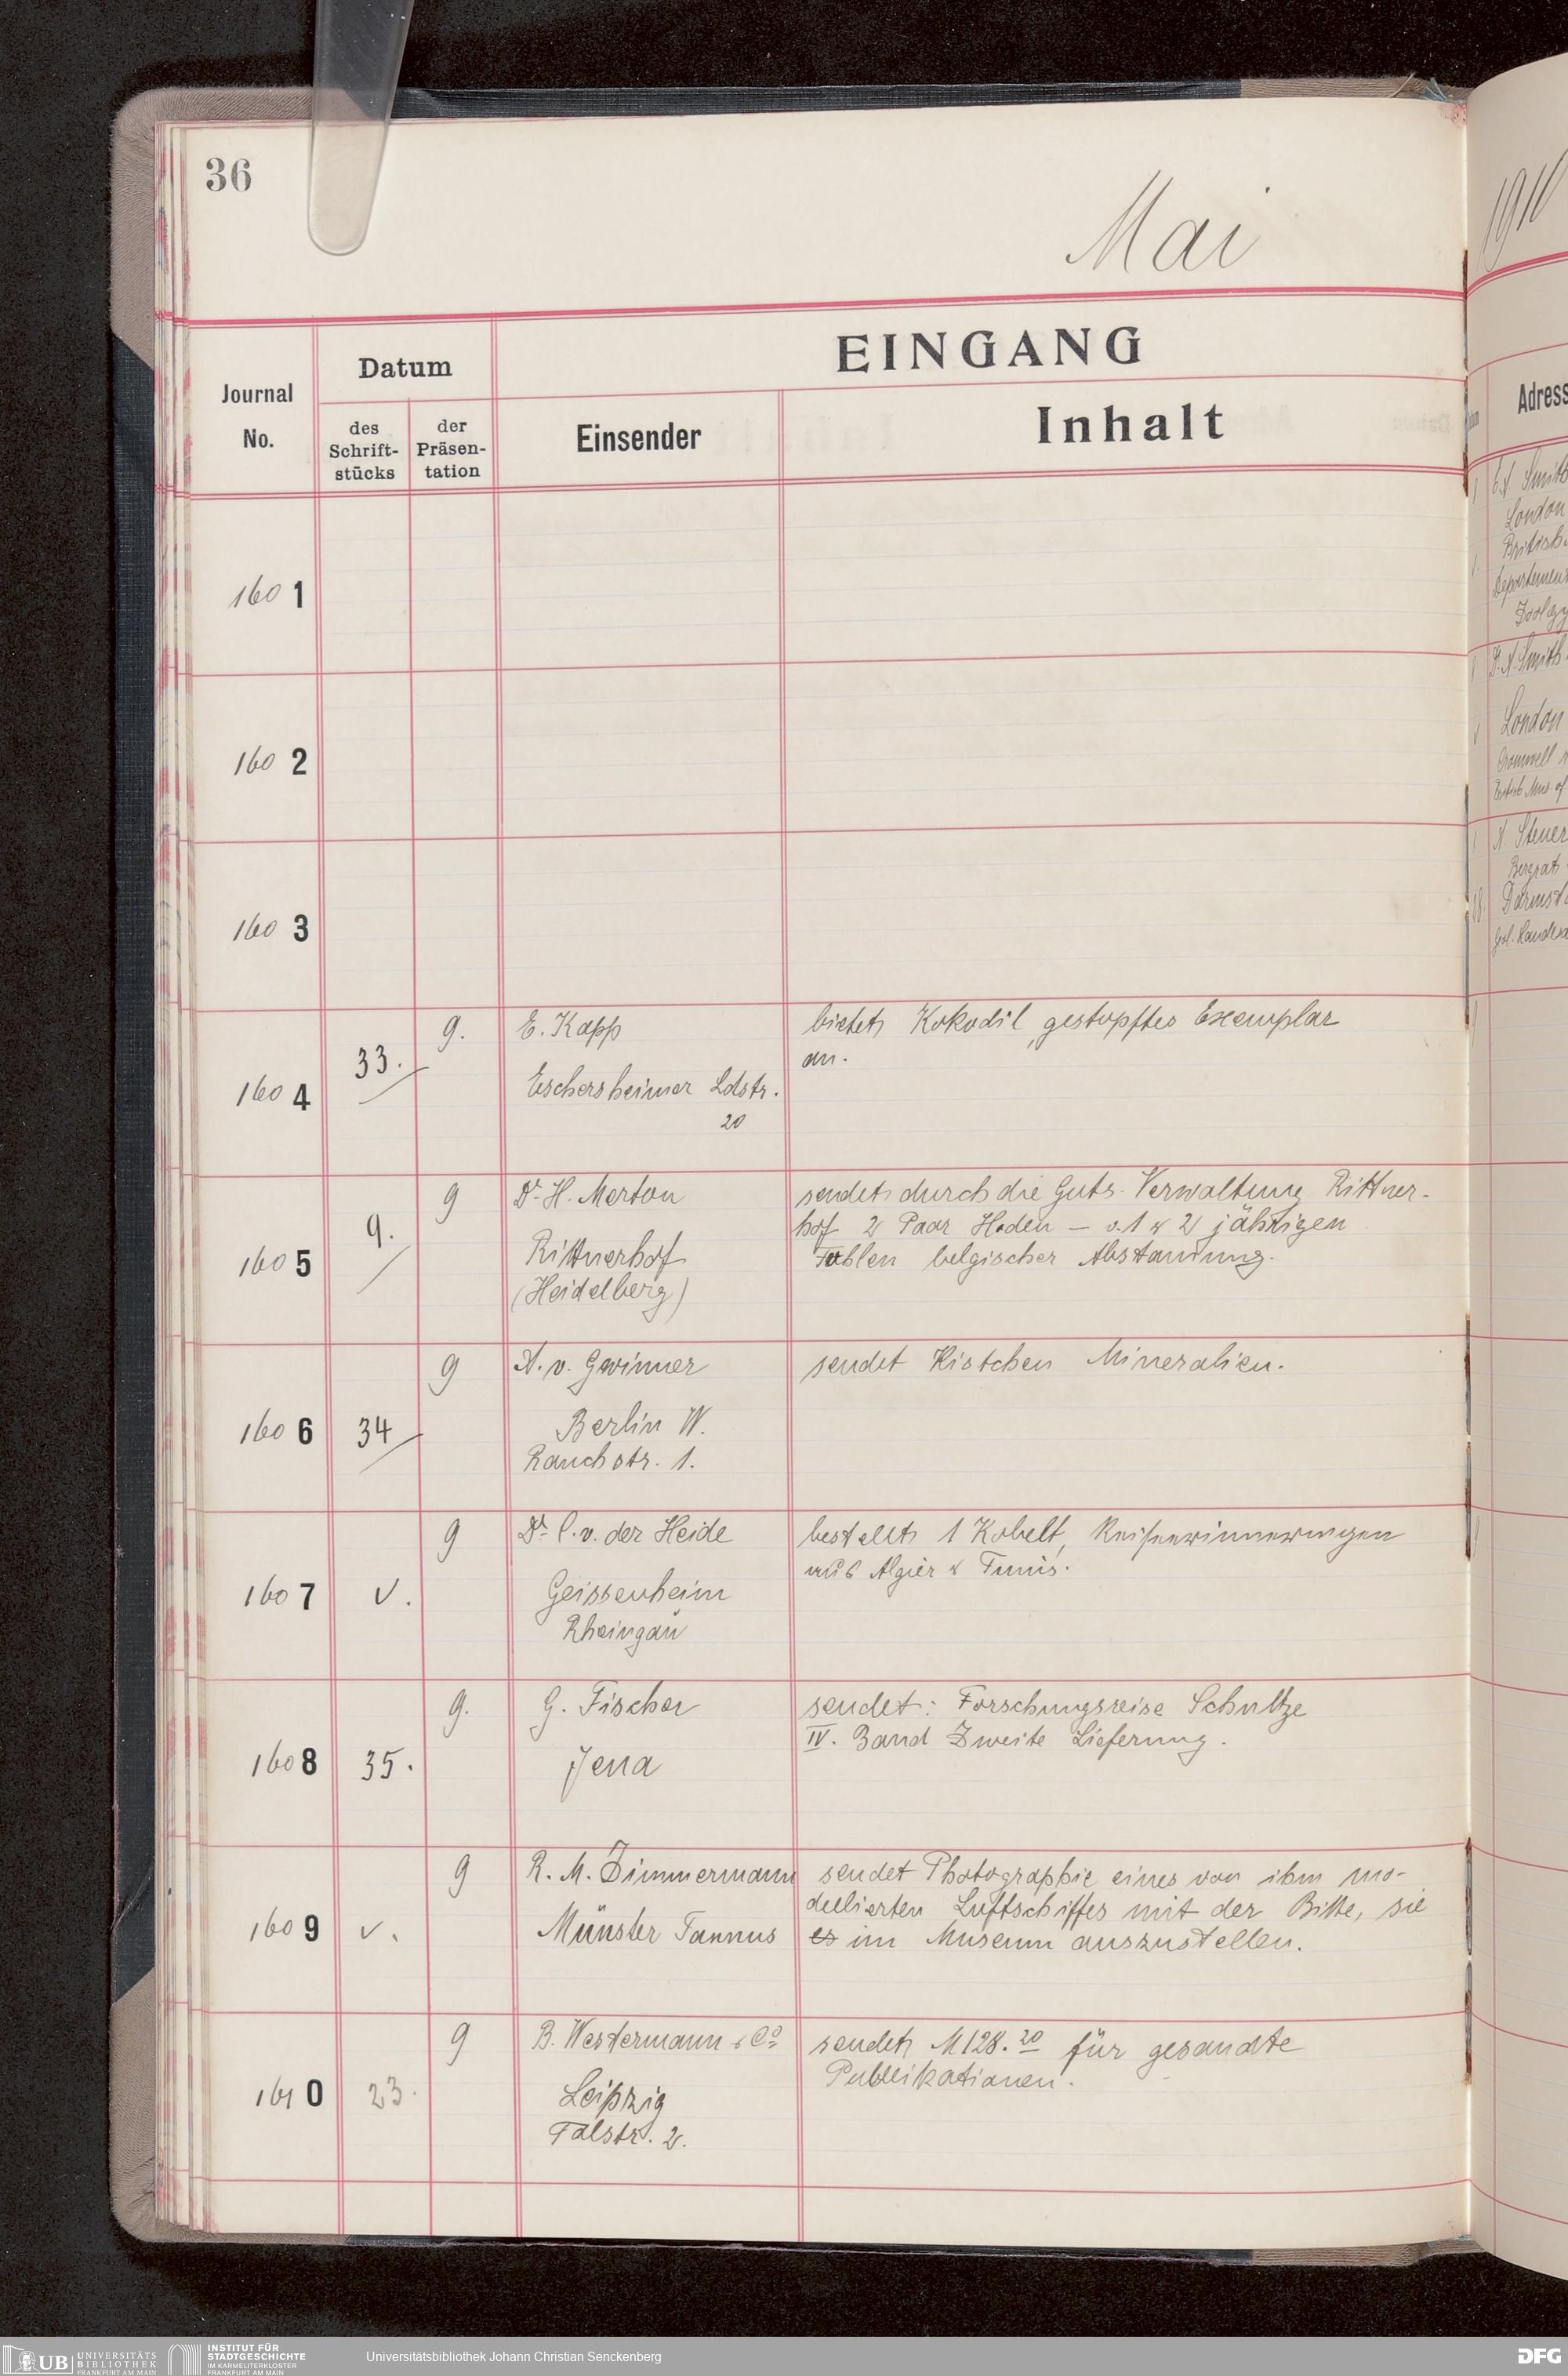 36
Mai
1910
EINGANG
Journal
No.
Datum
des
Schrift-
stücks
der
Präsen-
tation
Einsender
Inhalt
Adress
160 1
160 2
160 3
160 4
33.
9.
E. Kapp
Eschersheimer Ldstr.
20
bietet Kokodil, gestopftes Exemplar
an.
160 5
9.
9
Dr. H. Merton
Rittnerhof
(Heidelberg)
sendet durch die Guts-Verwaltung Rittner-
hof 2 Paar Hoden – v. 1 & 2 jährigen
Fohlen belgischer Abstammung.
160 6
34
9
A. v. Gwinner
Berlin W.
Rauchstr. 1.
sendet Kistchen Mineralien.
160 7
v.
9
Dr. C. v. der Heide
Geissenheim
Rheingau
bestellt 1 Kobelt, Reiseerinnerungen
aus Algier & Tunis.
160 8
35.
9.
G. Fischer
Jena
sendet: Forschungsreise Schultze
IV. Band Zweite Lieferung.
160 9
v.
9
R. M. Zimmermann
Münster Taunus
sendet Photographie eines von ihm mo-
dellierten Luftschiffes mit der Bitte, sie
es im Museum auszustellen.
161 0
23.
9
B. Westermann & Co
Leipzig
Talstr. 2.
sendet M 128.20 für gesandte
Publikationen.
Smith
London
British
Departement
Smith
London
Cromwell
Steuer
Bergrat
UB UNIVERSITÄTS
BIBLIOTHEK
FRANKFURT AM MAIN
INSTITUT FÜR
STADTGESCHICHTE
IM KARMELITERKLOSTER
FRANKFURT AM MAIN
Universitätsbibliothek Johann Christian Senckenberg
DFG